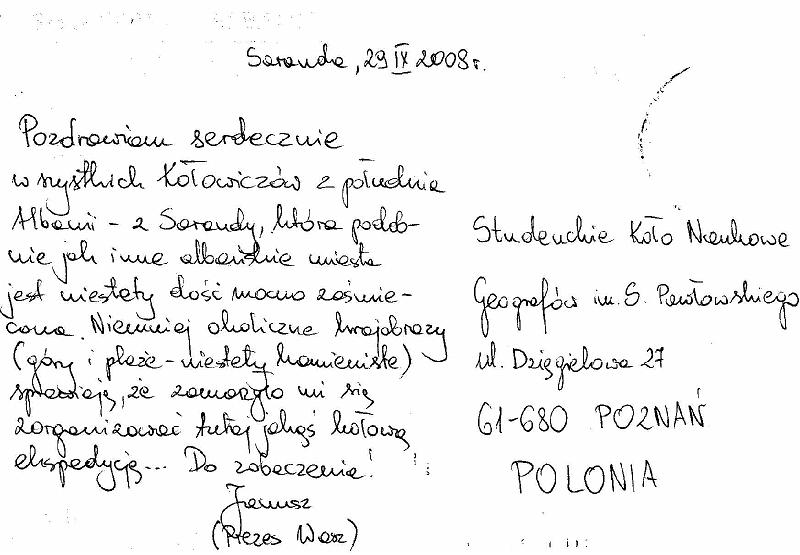 Saranda, 29 IX 2008 r.
Pozdrawiam serdecznie
wszystkich Kołowiczów z południa
Albanii - z Sarandy, która podob-
nie jak inne albańskie miasta
jest niestety dość mocno zaśmie-
cona. Niemniej okoliczne krajobrazy
(góry i plaże - niestety kamieniste)
sprawiają, że zamarzyło mi się
zorganizować tutaj jakąś kołową
ekspedycję... Do zobaczenia!
Janusz
(Prezes Wasz)
Studenckie Koło Naukowe
Geografów im. S. Pawłowskiego
ul. Dzięgielowa 27
61-680 POZNAŃ
POLONIA